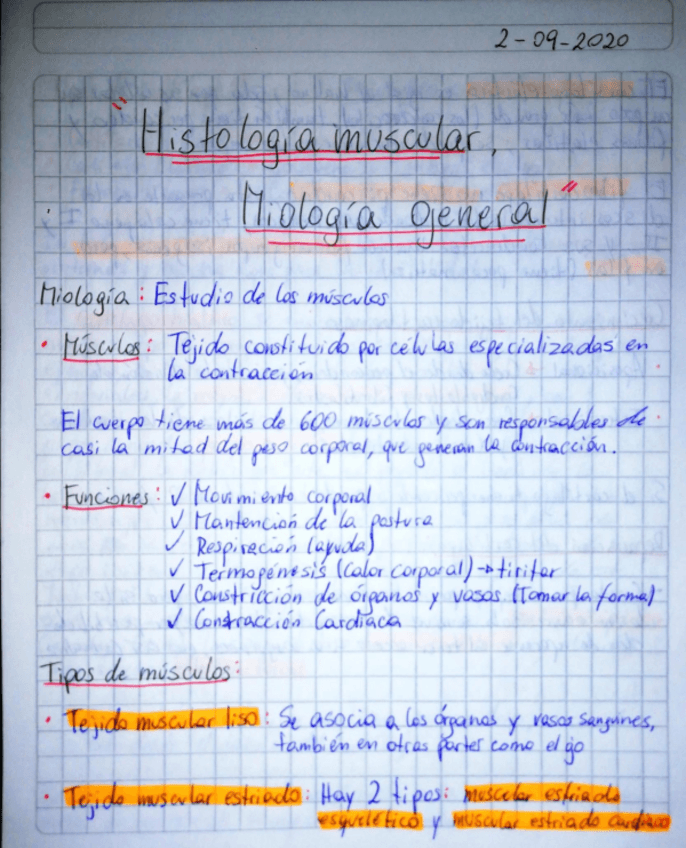 2-09-2020
"Histología muscular,
Miología general"
Miología: Estudio de los músculos
• Músculos: Tejido constituido por células especializadas en
la contracción
El cuerpo tiene más de 600 músculos y son responsables de
casi la mitad del peso corporal, que generan la contracción.
• Funciones: ✓ Movimiento corporal
✓ Mantención de la postura
✓ Respiración (ayuda)
✓ Termogénesis (Calor corporal) → tiritar
✓ Constricción de órganos y vasos (Tomar la forma)
✓ Contracción Cardiaca
Tipos de músculos:
• Tejido muscular liso: Se asocia a los órganos y vasos sanguines,
también en otras partes como el ojo
• Tejido muscular estriado: Hay 2 tipos: muscular estriado
esquelético y muscular estriado cardiaco